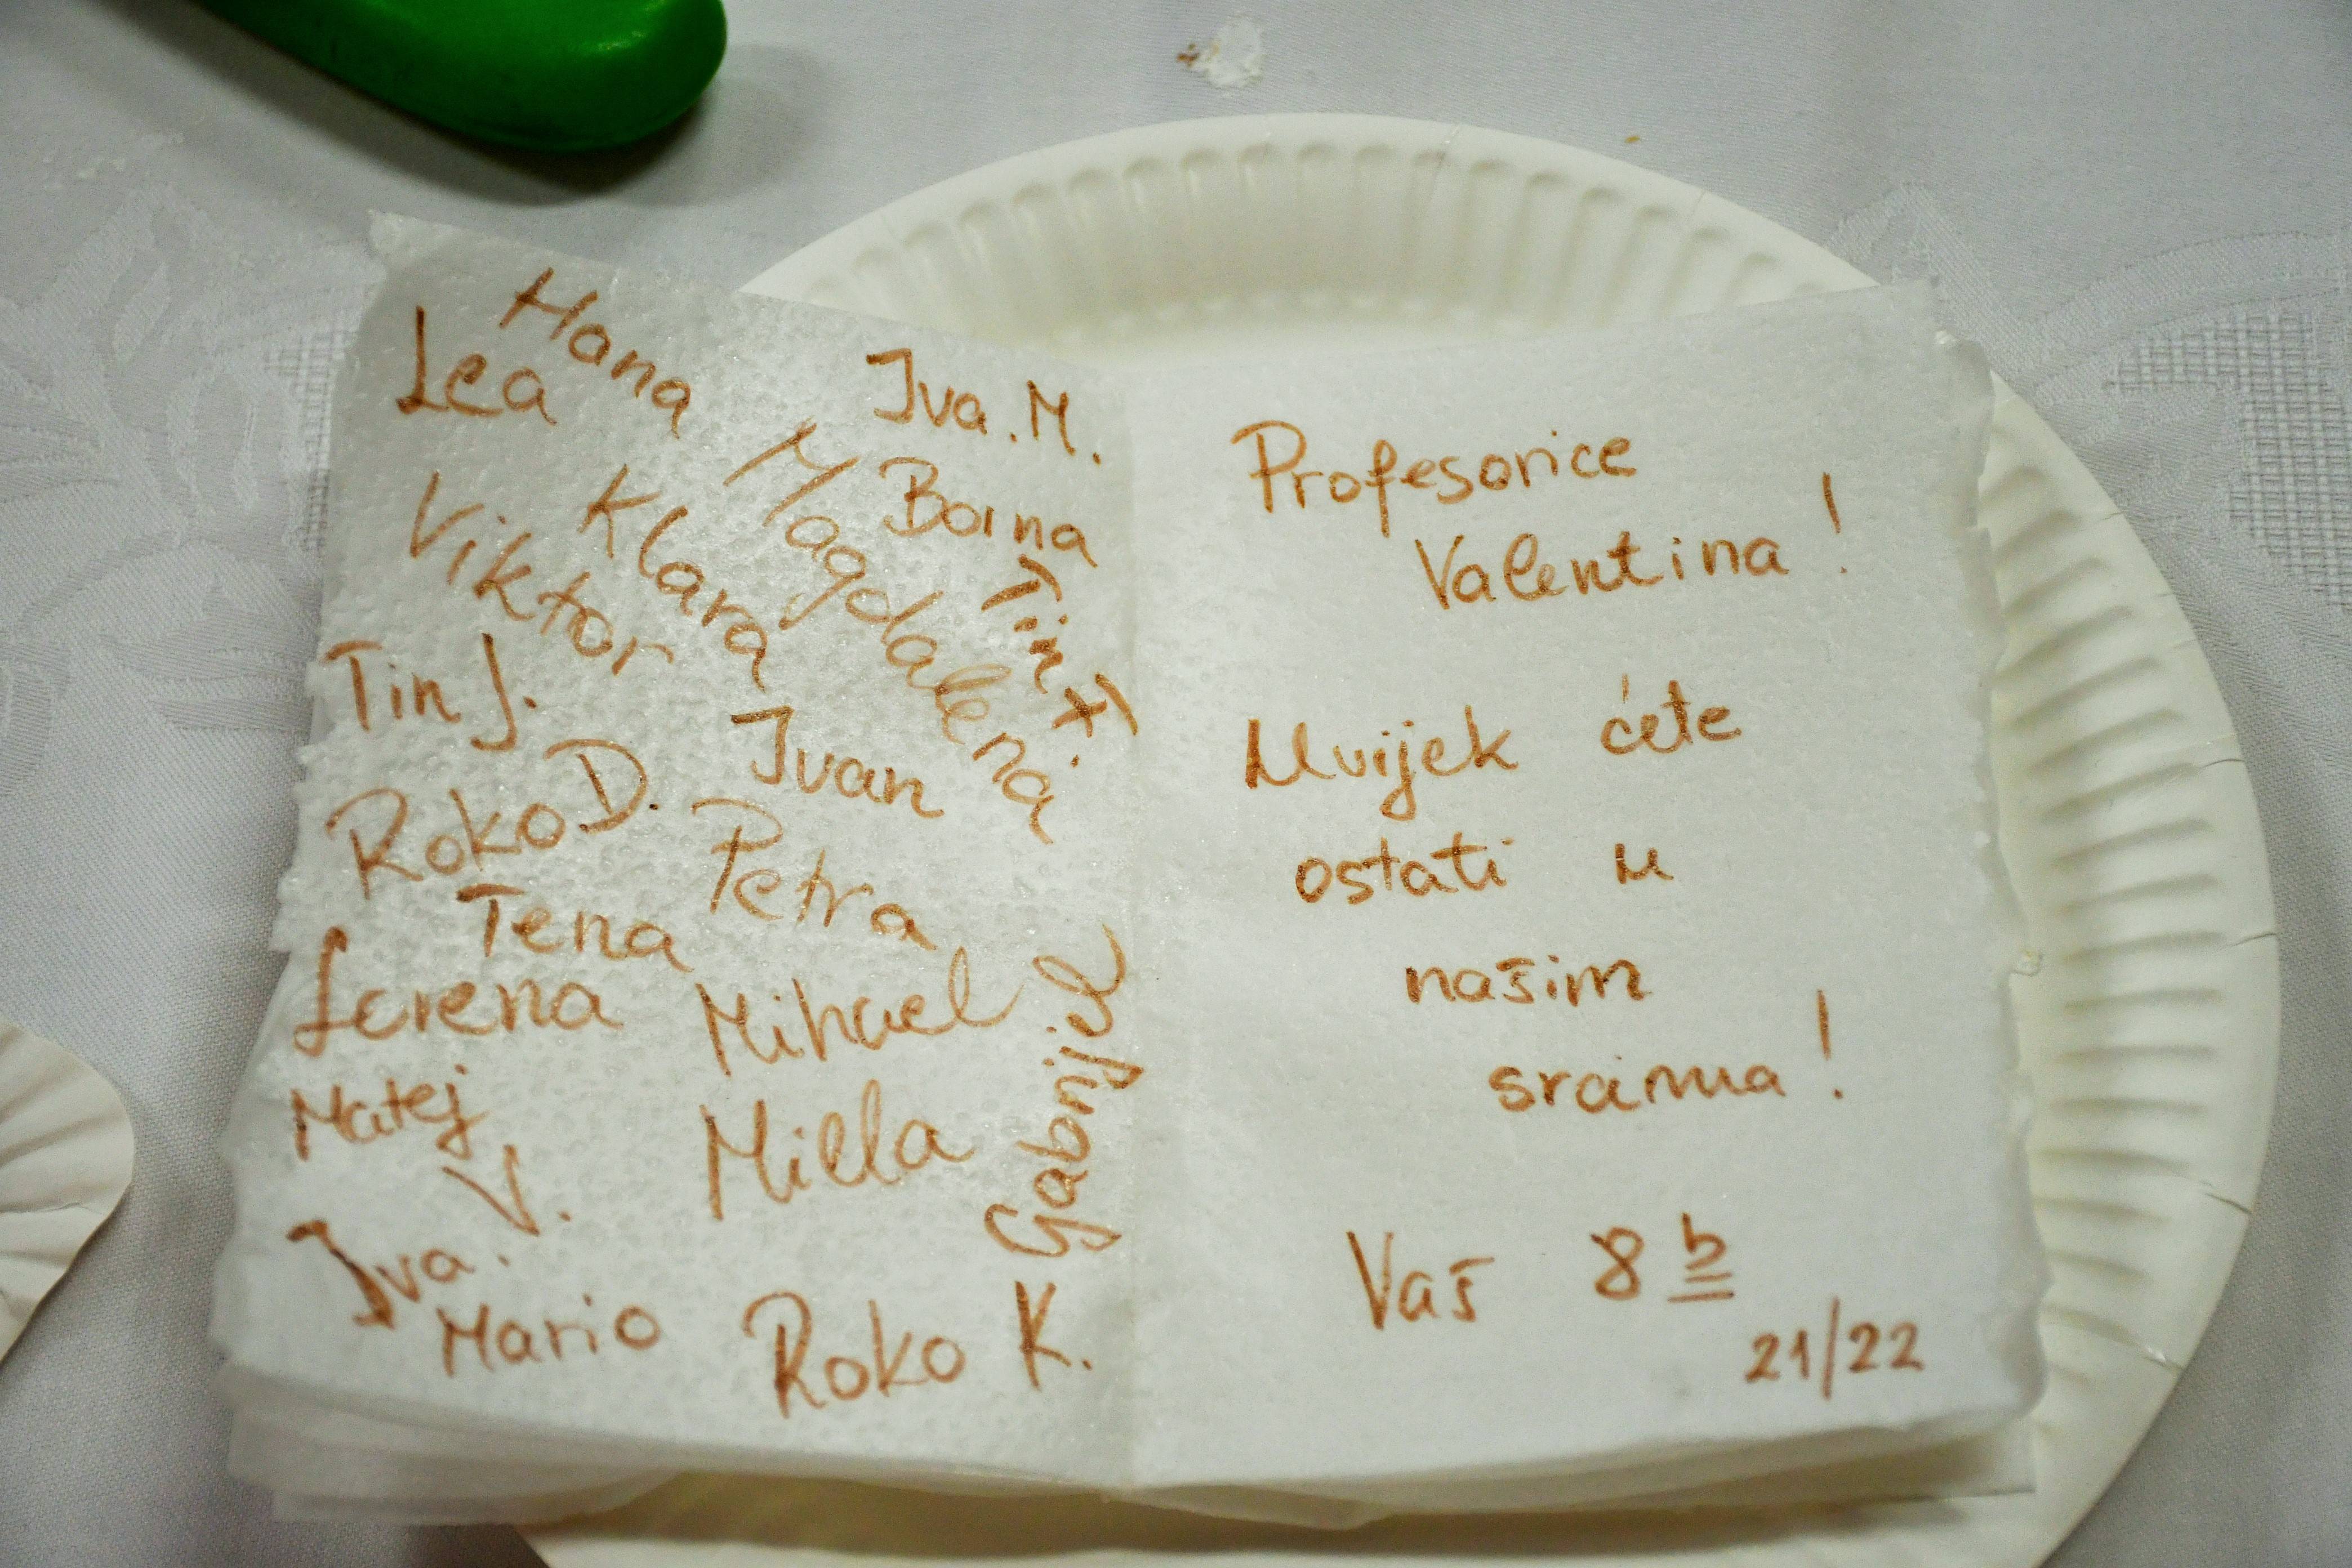 Hana
Lea
Iva.M.
Borna
Magdalena
Klara
Viktor
Tin
Tin J.
Ivan
Roko D.
Petra
Tena
Lorena
Mihael
Gabrijel
Matej
V.
Milla
Iva.
Mario
Roko K.
Profesorice
Valentina!
Uvijek ćete
ostati u
našim
srcima!
Vaš 8 b
21/22